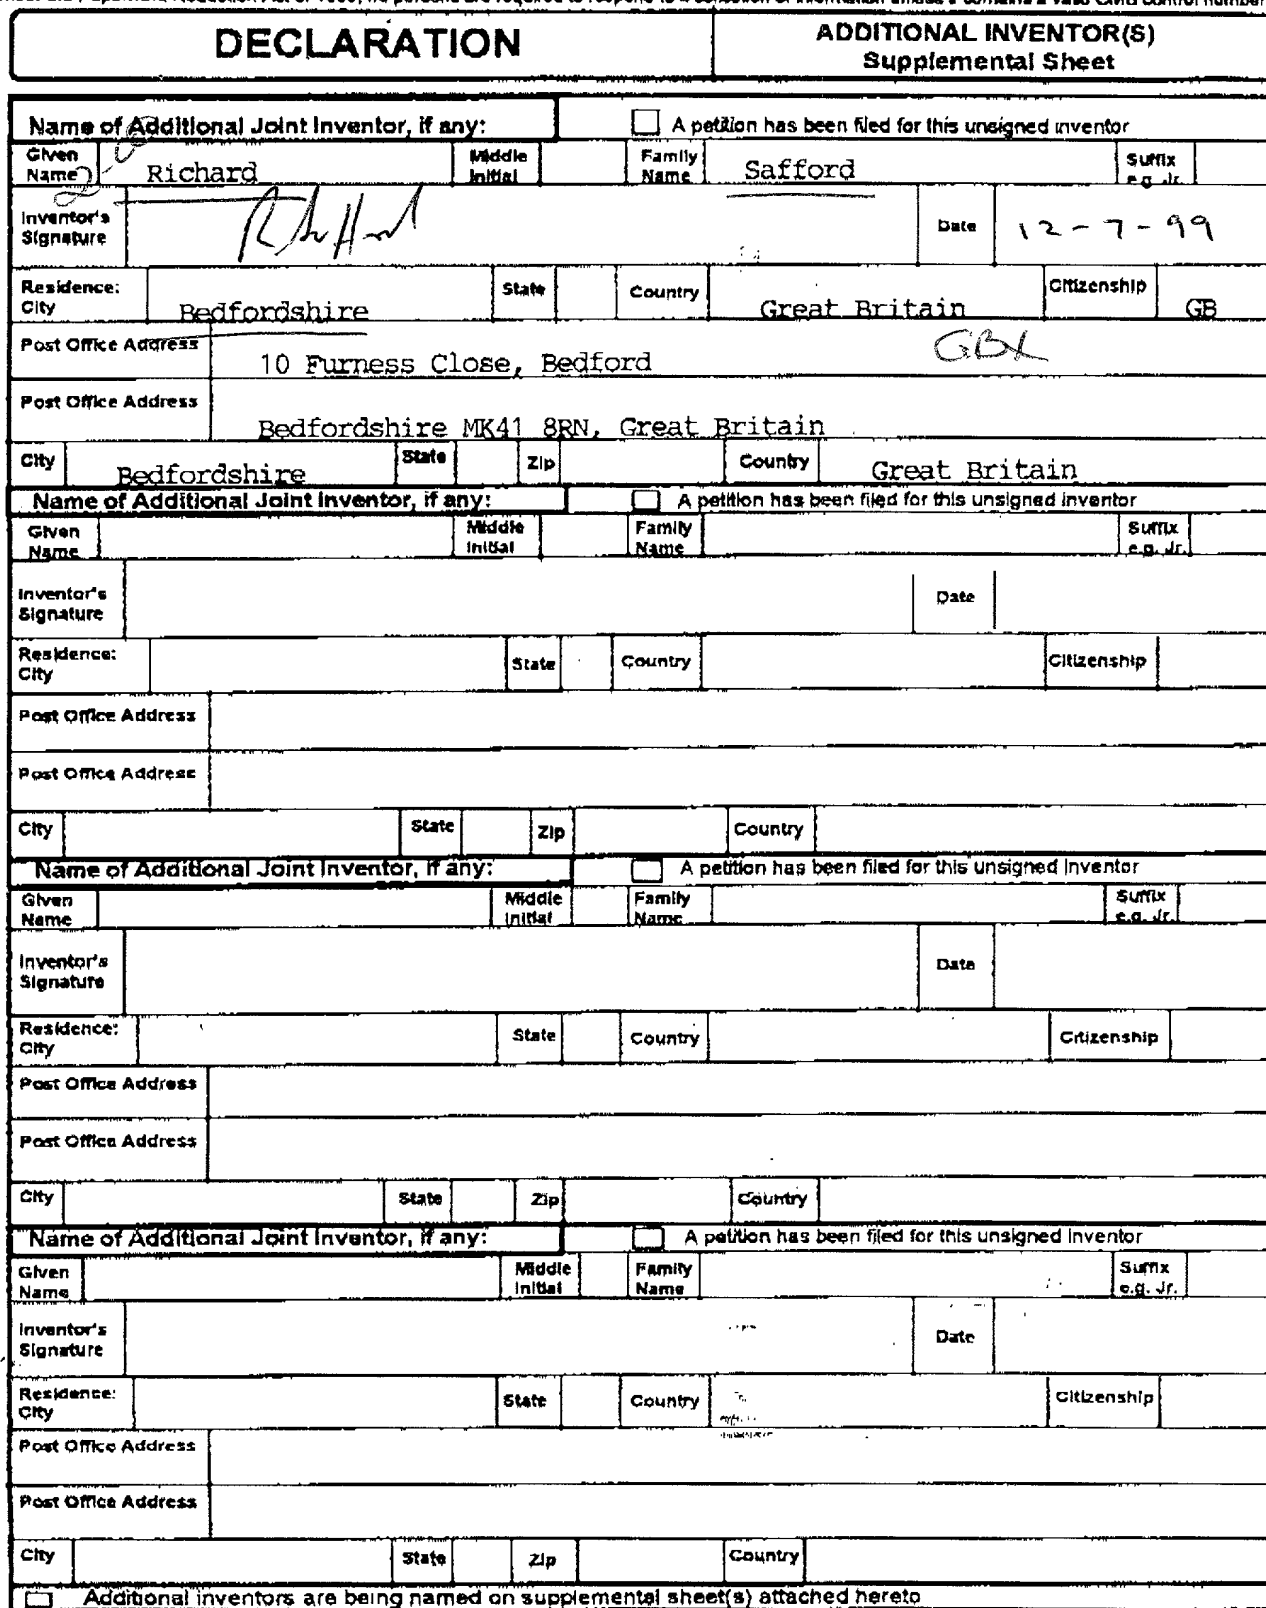 DECLARATION
ADDITIONAL INVENTOR(S)
Supplemental Sheet
Name of Additional Joint Inventor, if any:
A petition has been filed for this unsigned inventor
Given Name Richard Middle Initial Family Name Safford Suffix e.g. Jr.
Inventor's Signature Date 12-7-99
Residence: City Bedfordshire State Country Great Britain Citizenship GB
Post Office Address 10 Furness Close, Bedford GBX
Post Office Address Bedfordshire MK41 8RN, Great Britain
City Bedfordshire State Zip Country Great Britain
Name of Additional Joint Inventor, if any:
A petition has been filed for this unsigned inventor
Given Name Middle Initial Family Name Suffix e.g. Jr.
Inventor's Signature Date
Residence: City State Country Citizenship
Post Office Address
Post Office Address
City State Zip Country
Name of Additional Joint Inventor, if any:
A petition has been filed for this unsigned inventor
Given Name Middle Initial Family Name Suffix e.g. Jr.
Inventor's Signature Date
Residence: City State Country Citizenship
Post Office Address
Post Office Address
City State Zip Country
Name of Additional Joint Inventor, if any:
A petition has been filed for this unsigned inventor
Given Name Middle Initial Family Name Suffix e.g. Jr.
Inventor's Signature Date
Residence: City State Country Citizenship
Post Office Address
Post Office Address
City State Zip Country
Additional inventors are being named on supplemental sheet(s) attached hereto